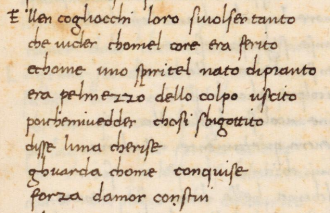 Ellen cogliocchi loro siuolser tanto
che uider chomel core era ferito
echome uno spiritel nato dipianto
era pelmezzo dello colpo uscito
poichemiuedder chosi sbigottito
disse luna cherise
ghuarda chome conquise
forza damor costui